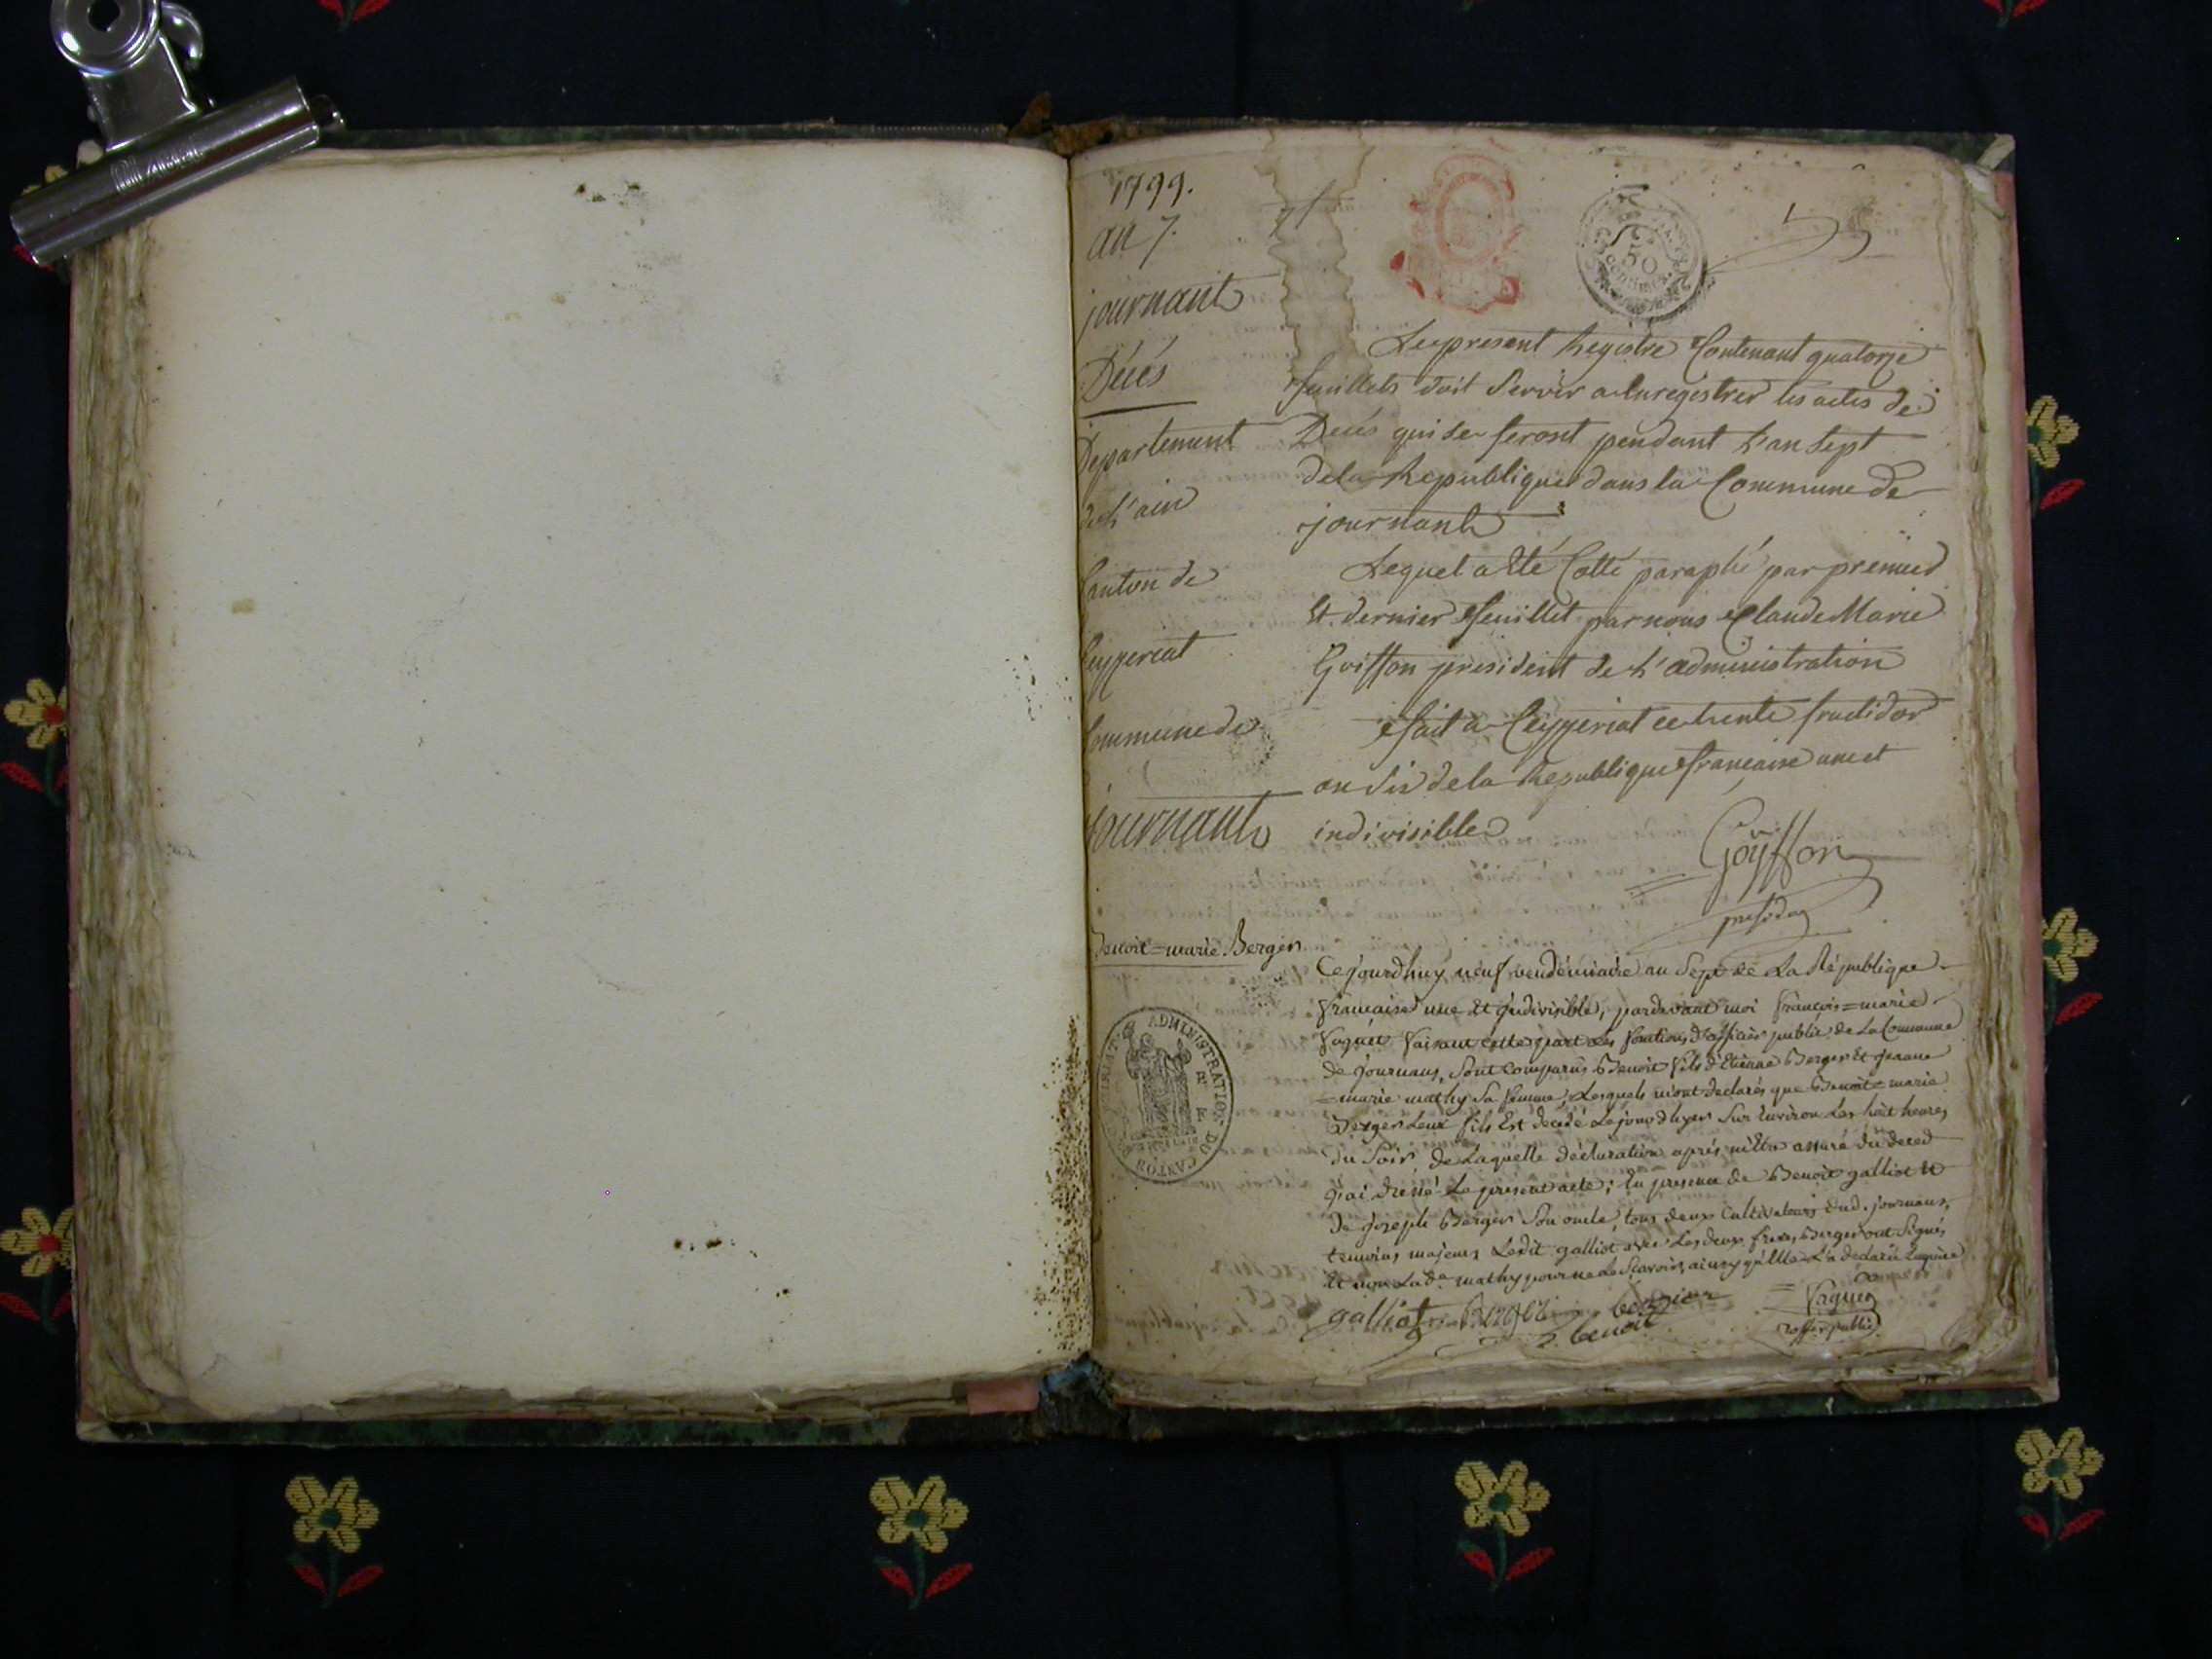 1799.
an 7.
journant
Décés
Departement
de L'ain
Canton de
Ceyzeriat
Commune de
journant
Le present Registre Contenant quatorze
feuillets doit servir a Enregistrer les actes de
Decés qui se feront pendant L'an sept
de la Republique dans la Commune de
journant
Lequel a Eté Cotté paraphé par premier
Et dernier feuillet par nous Claude Marie
Goiffon president de L'administration
fait a Ceyzeriat ce trente fructidor
an six de la Republique francaise une et
indivisible
Goÿffon
presidᵗ
Benoit=marie Berger
Cejourdhuy neuf vendémiaire an Sept de La République
francaise une et Indivisible, pardevant moi francois=marie
faguet faisant cette part Les fonctions d'officier public de La Commune
de Journans, Sont Comparus Benoit fils d'Etienne Berger Et jeanne
=marie mathy Sa femme, Lesquels m'ont declarés que Benoit=marie
Berger Leur fils Est decédé Lejourdhyer Sur Environ Les huit heures
du Soir, de Laquelle déclaration aprés m'Etre assuré du deced
j'ai dressé Le present acte; En presence de Benoit galliot Et
de Joseph Berger Son oncle, tous deux Cultivateurs dud. journans,
temoins majeurs Ledit galliot avec Les deux freres Berger ont Signés
Et non La de mathy pour ne Le Scavoir, ainsy qu'Elle L'a declaré Enquise
galliot Berger bergier
benoit
faguet
offer. public
ADMINISTRATION DU CANTON
50
centimes